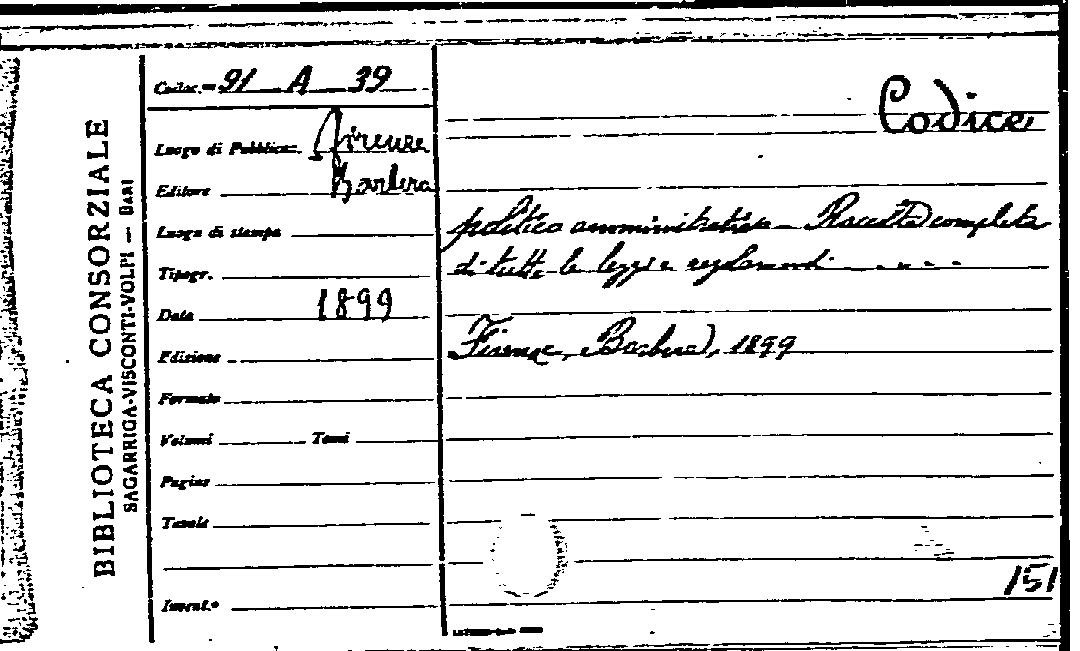 BIBLIOTECA CONSORZIALE
SAGARRIGA-VISCONTI-VOLPI — BARI
Colloc.= 91 A 39
Luogo di Pubblica= Firenze
Editore Barbera
Luogo di stampa
Tipogr.
Data 1899
Edizione
Formato
Volumi Tomi
Pagine
Tavole
Invent.º
Codice
politico amministrativo – Raccolta completa
di tutte le leggi e regolamenti . . . .
Firenze, Barbera, 1899
151